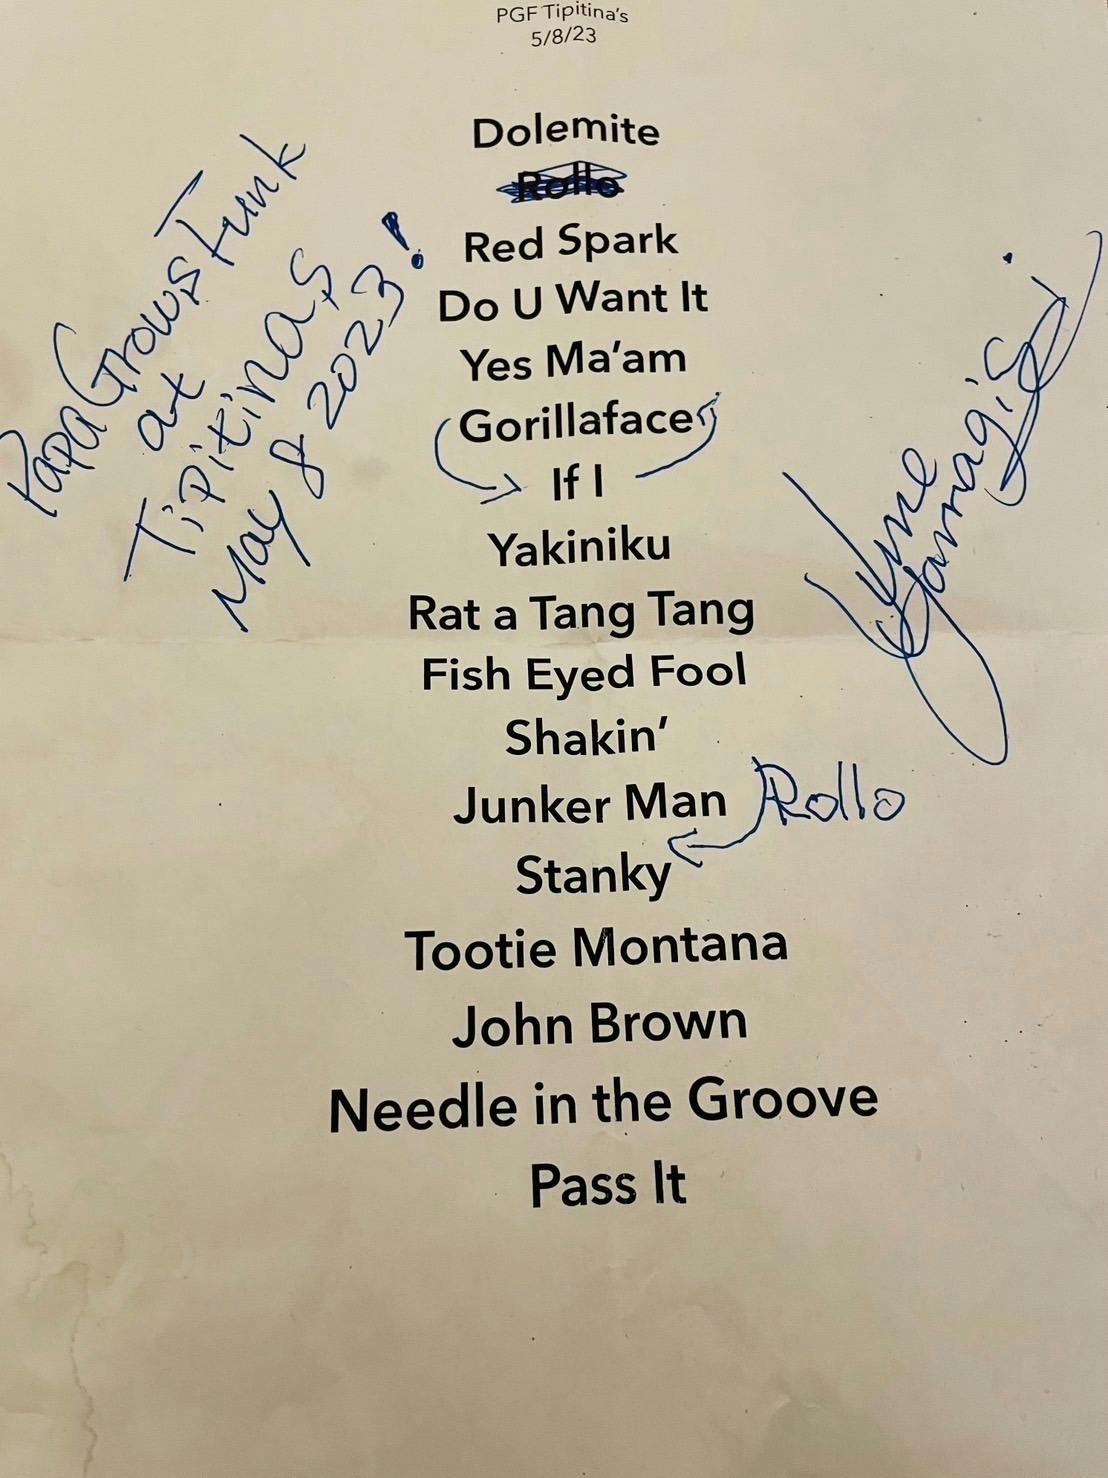 PGF Tipitina's
5/8/23
Dolemite
Rollo
Red Spark
Do U Want It
Yes Ma'am
Gorillaface
If I
Yakiniku
Rat a Tang Tang
Fish Eyed Fool
Shakin'
Junker Man
Rollo
Stanky
Tootie Montana
John Brown
Needle in the Groove
Pass It
Papa Grows Funk
at
Tipitinas
May 8 2023!
June
Yamagishi